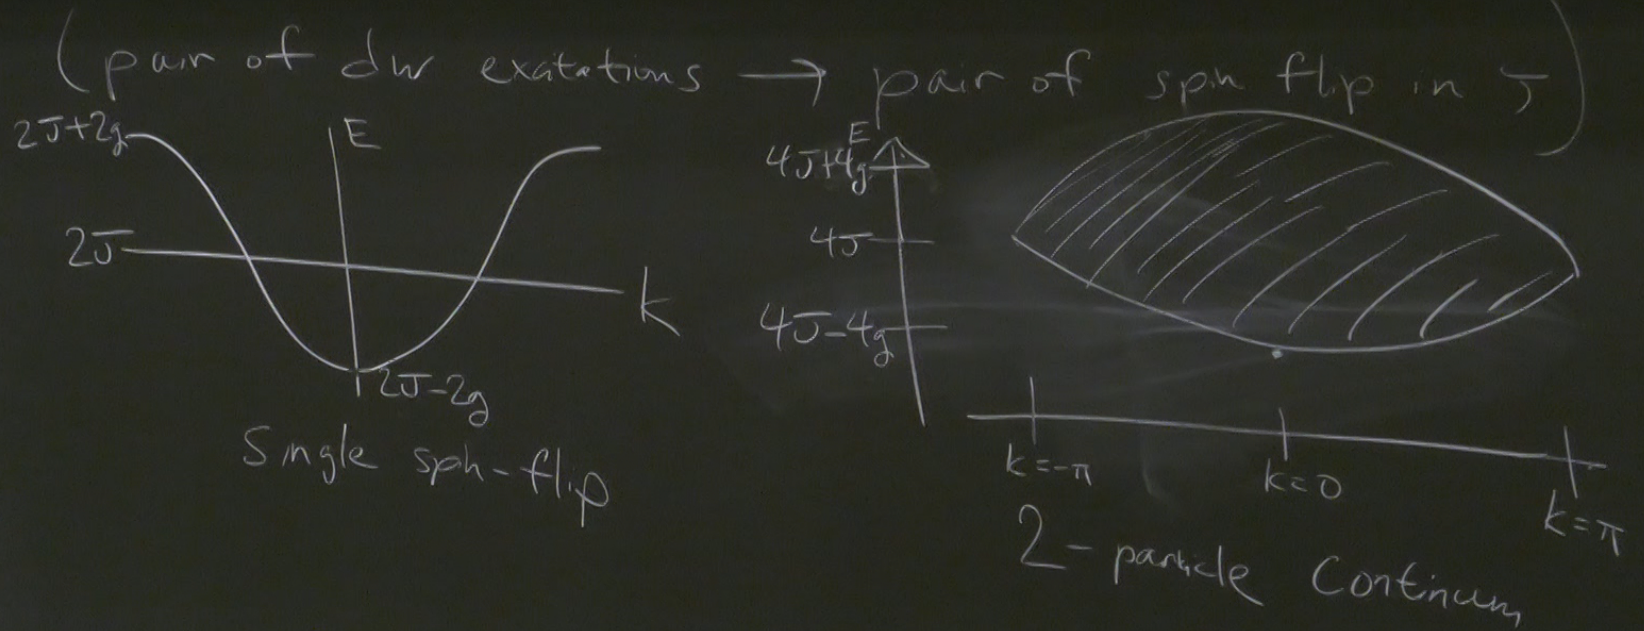 (pair of dw excitations → pair of spin flip in J)
2J+2g
E
2J
k
2J-2g
Single spin-flip
E
4J+4g
4J
4J-4g
k=-π
k=0
k=π
2-particle Continuum